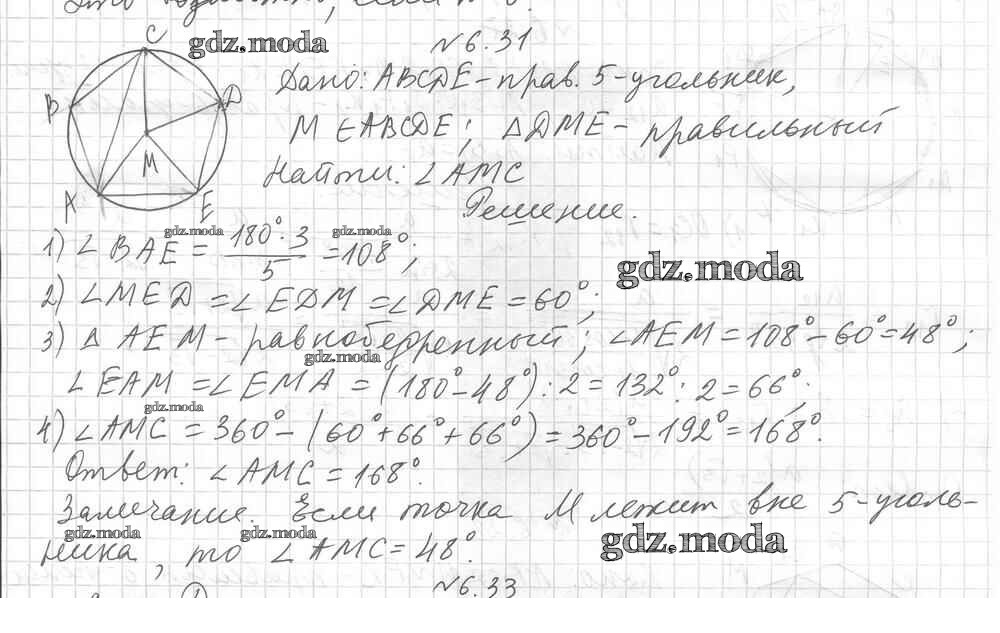 C
№6.31
B
D
M
A
E
Дано: ABCDE – прав. 5-угольник,
M ∈ ABCDE; △DME – правильный
Найти: ∠AMC
Решение.
1) ∠BAE = 180°·3/5 = 108°;
2) ∠MED = ∠EDM = ∠DME = 60°;
3) △AEM – равнобедренный; ∠AEM = 108° – 60° = 48°;
∠EAM = ∠EMA = (180° – 48°) : 2 = 132° : 2 = 66°;
4) ∠AMC = 360° – (60° + 66° + 66°) = 360° – 192° = 168°.
Ответ: ∠AMC = 168°.
Замечание. Если точка M лежит вне 5-уголь-
ника, то ∠AMC = 48°.
№6.33
gdz.moda
gdz.moda
gdz.moda
gdz.moda
gdz.moda
gdz.moda
gdz.moda
gdz.moda
gdz.moda